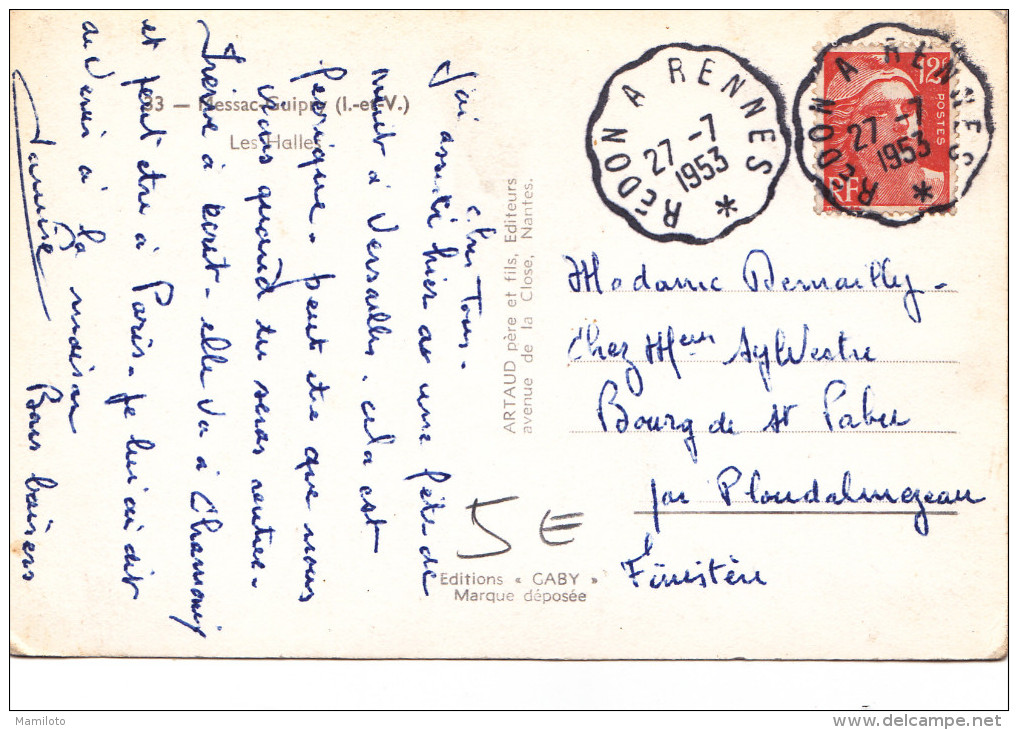 33 — Messac-Guipry (I.-et-V.)
Les Halles
Chers Tous.
J'ai assisté hier à une fête de
nuit à Versailles. cela est
féerique. peut être que nous
irons quand tu seras rentrée.
a écrit - elle va à Chamonix
et peut être à Paris. je lui ai dit
de venir à la maison
Bons baisers
ARTAUD père et fils, Editeurs
avenue de la Close, Nantes.
Editions « GABY »
Marque déposée
5 E
REDON A RENNES
27 -7
1953
*
REDON A RENNES
27 -7
1953
*
12F
POSTES
RF
Madame Demailly -
Chez Meur Sylvestre
Bourg de St Pabu
par Ploudalmezeau
Finistère
Mamiloto
www.delcampe.net